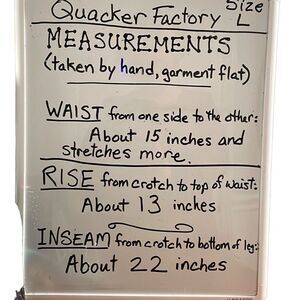 Quacker Factory Size
L
MEASUREMENTS
(taken by hand, garment flat)
WAIST from one side to the other:
About 15 inches and
stretches more.
RISE from crotch to top of waist:
About 13 inches
INSEAM from crotch to bottom of leg:
About 22 inches